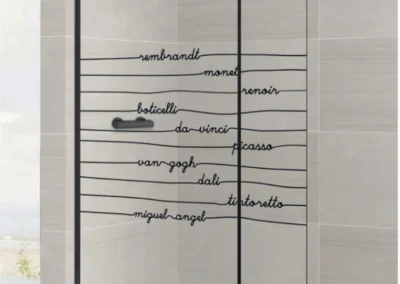 rembrandt
monet
renoir
boticelli
da vinci
picasso
van gogh
dalí
tintoretto
miguel angel